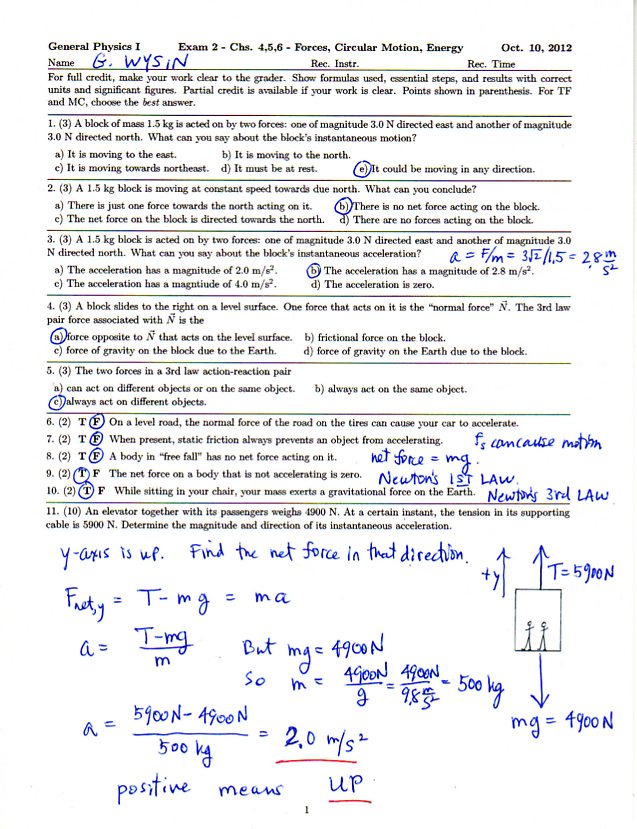 General Physics I Exam 2 - Chs. 4,5,6 - Forces, Circular Motion, Energy Oct. 10, 2012
Name G. WYSIN Rec. Instr. Rec. Time
For full credit, make your work clear to the grader. Show formulas used, essential steps, and results with correct
units and significant figures. Partial credit is available if your work is clear. Points shown in parenthesis. For TF
and MC, choose the best answer.
1. (3) A block of mass 1.5 kg is acted on by two forces: one of magnitude 3.0 N directed east and another of magnitude
3.0 N directed north. What can you say about the block's instantaneous motion?
a) It is moving to the east. b) It is moving to the north.
c) It is moving towards northeast. d) It must be at rest. e) It could be moving in any direction.
2. (3) A 1.5 kg block is moving at constant speed towards due north. What can you conclude?
a) There is just one force towards the north acting on it. b) There is no net force acting on the block.
c) The net force on the block is directed towards the north. d) There are no forces acting on the block.
3. (3) A 1.5 kg block is acted on by two forces: one of magnitude 3.0 N directed east and another of magnitude 3.0
N directed north. What can you say about the block's instantaneous acceleration? a = F/m = 3√2/1.5 = 2.8 m/s²
a) The acceleration has a magnitude of 2.0 m/s². b) The acceleration has a magnitude of 2.8 m/s².
c) The acceleration has a magntiude of 4.0 m/s². d) The acceleration is zero.
4. (3) A block slides to the right on a level surface. One force that acts on it is the "normal force" N⃗. The 3rd law
pair force associated with N⃗ is the
a) force opposite to N⃗ that acts on the level surface. b) frictional force on the block.
c) force of gravity on the block due to the Earth. d) force of gravity on the Earth due to the block.
5. (3) The two forces in a 3rd law action-reaction pair
a) can act on different objects or on the same object. b) always act on the same object.
c) always act on different objects.
6. (2) T F On a level road, the normal force of the road on the tires can cause your car to accelerate.
7. (2) T F When present, static friction always prevents an object from accelerating. fs can cause motion
8. (2) T F A body in "free fall" has no net force acting on it. net force = mg.
9. (2) T F The net force on a body that is not accelerating is zero. Newton's 1ST LAW.
10. (2) T F While sitting in your chair, your mass exerts a gravitational force on the Earth. Newton's 3rd LAW
11. (10) An elevator together with its passengers weighs 4900 N. At a certain instant, the tension in its supporting
cable is 5900 N. Determine the magnitude and direction of its instantaneous acceleration.
y-axis is up. Find the net force in that direction.
+y T=5900N
Fnet,y = T - mg = ma
a = T-mg/m But mg = 4900N
so m = 4900N/g = 4900N/9.8 m/s² = 500 kg
mg = 4900N
a = 5900N - 4900N/500 kg = 2.0 m/s²
positive means UP
1